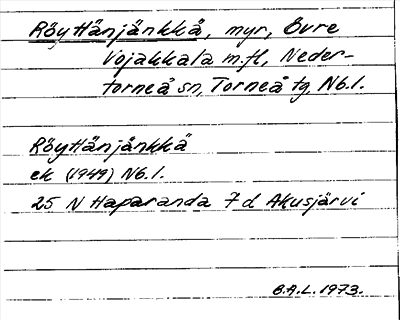 Röyttänjänkkä, myr, Övre
Vojakkala m.fl., Neder-
torneå sn, Torneå tg, Nb.l.
Röyttänjänkkä
ek (1949) Nb.l.
25 N Haparanda 7 d Akusjärvi
B.A.L. 1973.